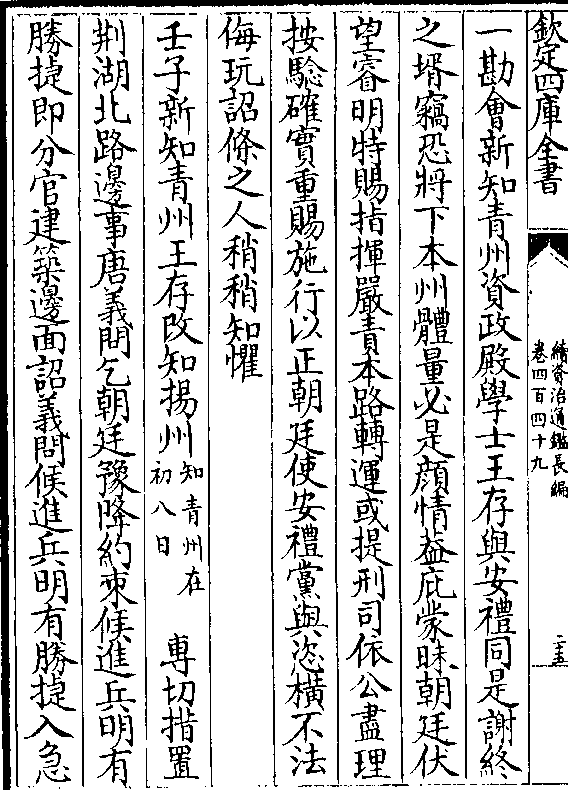 欽定四庫全書
續資治通鑑長編
卷四百四十九
二五
一勘會新知青州資政殿學士王存與安禮同是謝終
之壻竊恐將下本州體量必是顔情葢庇蒙昧朝廷伏
望睿明特賜指揮嚴責本路轉運或提刑司依公盡理
按驗確實重賜施行以正朝廷使安禮黨與恣橫不法
侮玩詔條之人稍稍知懼
壬子新知青州王存改知揚州知青州在初八日 專切措置
荆湖北路邊事唐義問乞朝廷豫降約束候進兵明有
勝捷即分官建築邊面詔義問候進兵明有勝捷入急